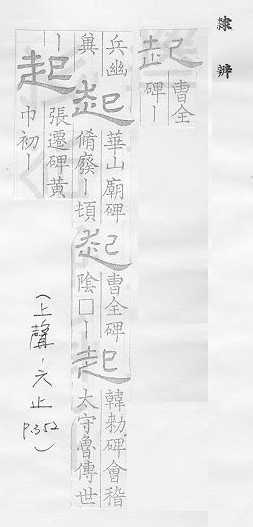 隸辨
起
曹全
碑ー
兵幽
冀
起
華山廟碑
脩廢ー頓
起
曹全碑
陰囗ー
起
韓勑碑會稽
太守魯傳世
ー
起
張遷碑黃
巾初ー
(上聲-六止 P.352)